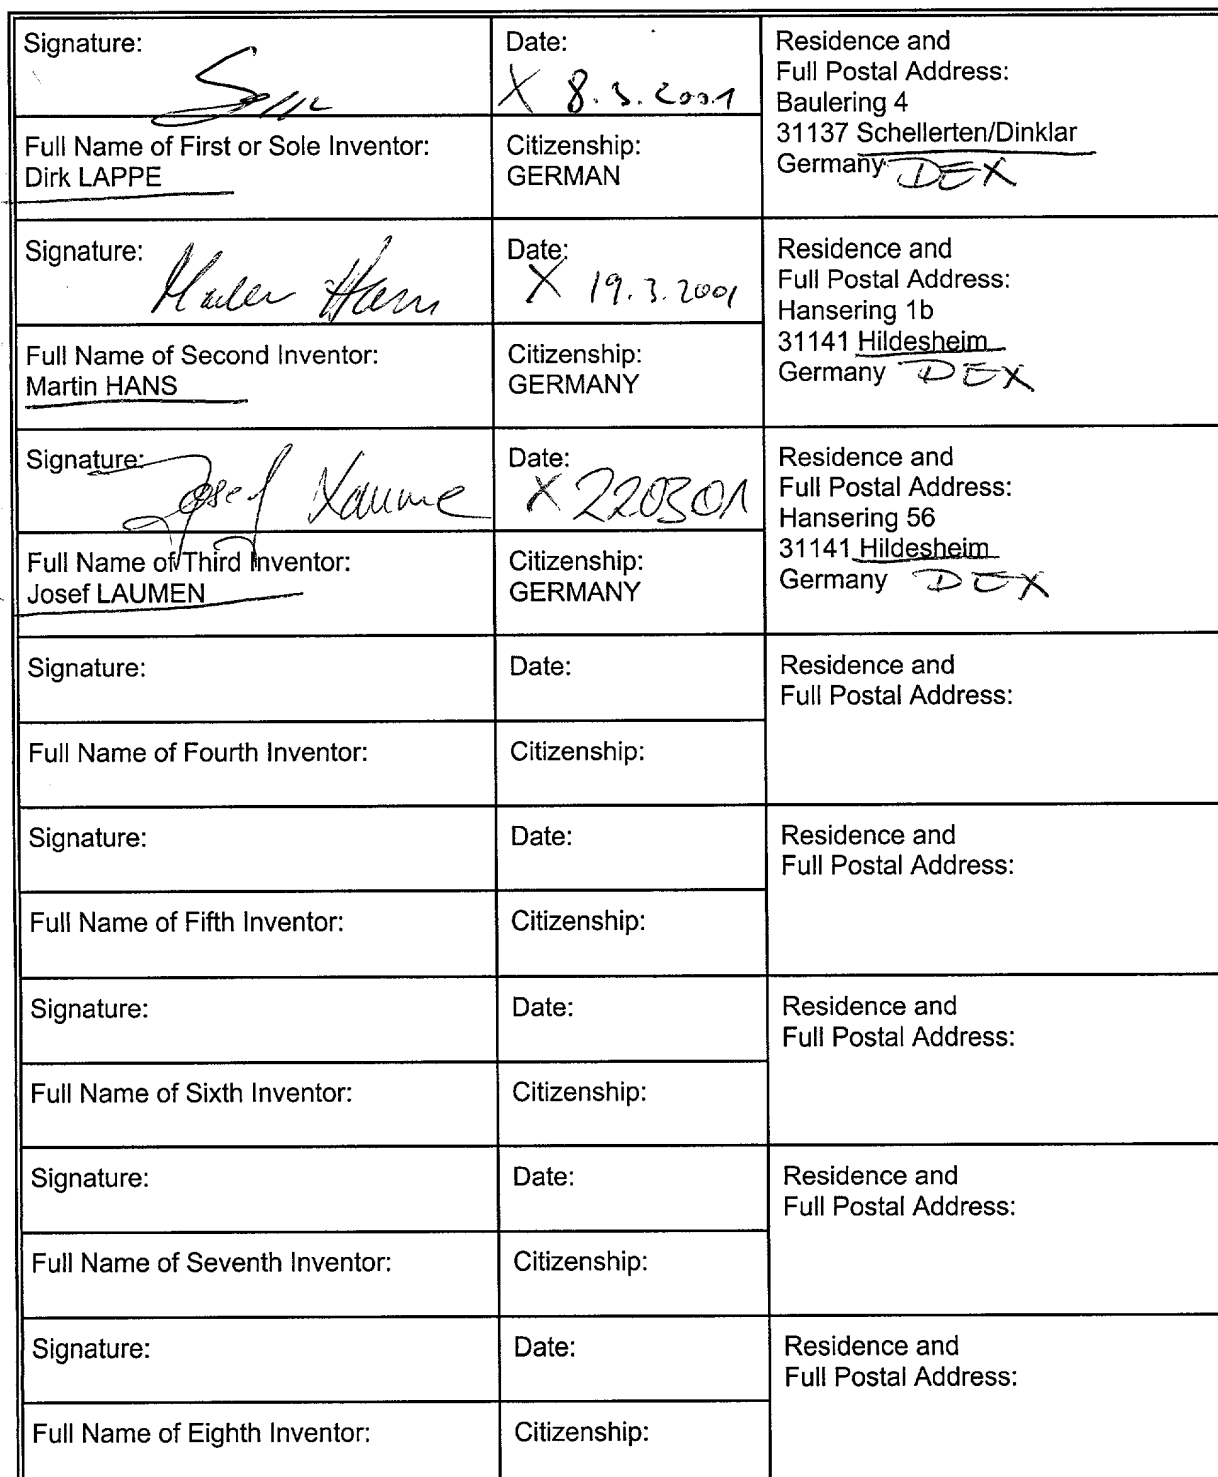 Signature:
Date:
X 8.3.2001
Residence and
Full Postal Address:
Baulering 4
31137 Schellerten/Dinklar
Germany DEX
Full Name of First or Sole Inventor:
Dirk LAPPE
Citizenship:
GERMAN
Signature: Martin Hans
Date:
X 19.3.2001
Residence and
Full Postal Address:
Hansering 1b
31141 Hildesheim
Germany DEX
Full Name of Second Inventor:
Martin HANS
Citizenship:
GERMANY
Signature: Josef Laumen
Date:
X 220301
Residence and
Full Postal Address:
Hansering 56
31141 Hildesheim
Germany DEX
Full Name of Third Inventor:
Josef LAUMEN
Citizenship:
GERMANY
Signature:
Date:
Residence and
Full Postal Address:
Full Name of Fourth Inventor:
Citizenship:
Signature:
Date:
Residence and
Full Postal Address:
Full Name of Fifth Inventor:
Citizenship:
Signature:
Date:
Residence and
Full Postal Address:
Full Name of Sixth Inventor:
Citizenship:
Signature:
Date:
Residence and
Full Postal Address:
Full Name of Seventh Inventor:
Citizenship:
Signature:
Date:
Residence and
Full Postal Address:
Full Name of Eighth Inventor:
Citizenship: